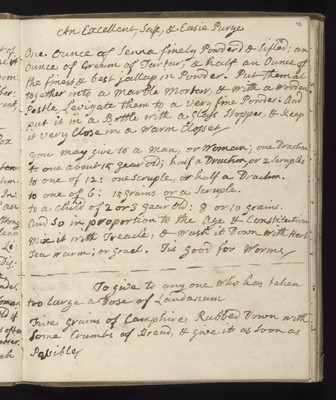 An Excellent, Safe, & Easie Purge
One Ounce of Senna finely Powderd & Sifted: an
Ounce of Cream of Tartar, & half an Ounce of
the finest & best Jallap in Powder. Put them al
together into a Marble Mortar, & with a Wooden
Pestle, Levigate them to a very fine Powder: And
put it in a Bottle with a Glass Stopper, & keep
it very Close in a Warm Closset
you may give to a Man, or Woman; one Drachm
to one about 15 year old; half a Drachm, or 2 Scruples
to one of 12: one Scruple, or half a Drachm.
to one of 6: 15 grains or a Scruple.
to a Child of 2 or 3 year old: 8 or 10 grains.
And So in proportion to the Age & Constitution
Mix it with Treacle, & Wash it Down with
Tea warm; or Gruel. Tis Good for Worms,
To give to any one who has taken
too large a Dose of Laudanum
Five grains of Camphire Rubbed Down with
Some Crumbs of Bread, & give it as Soon as
Possible,